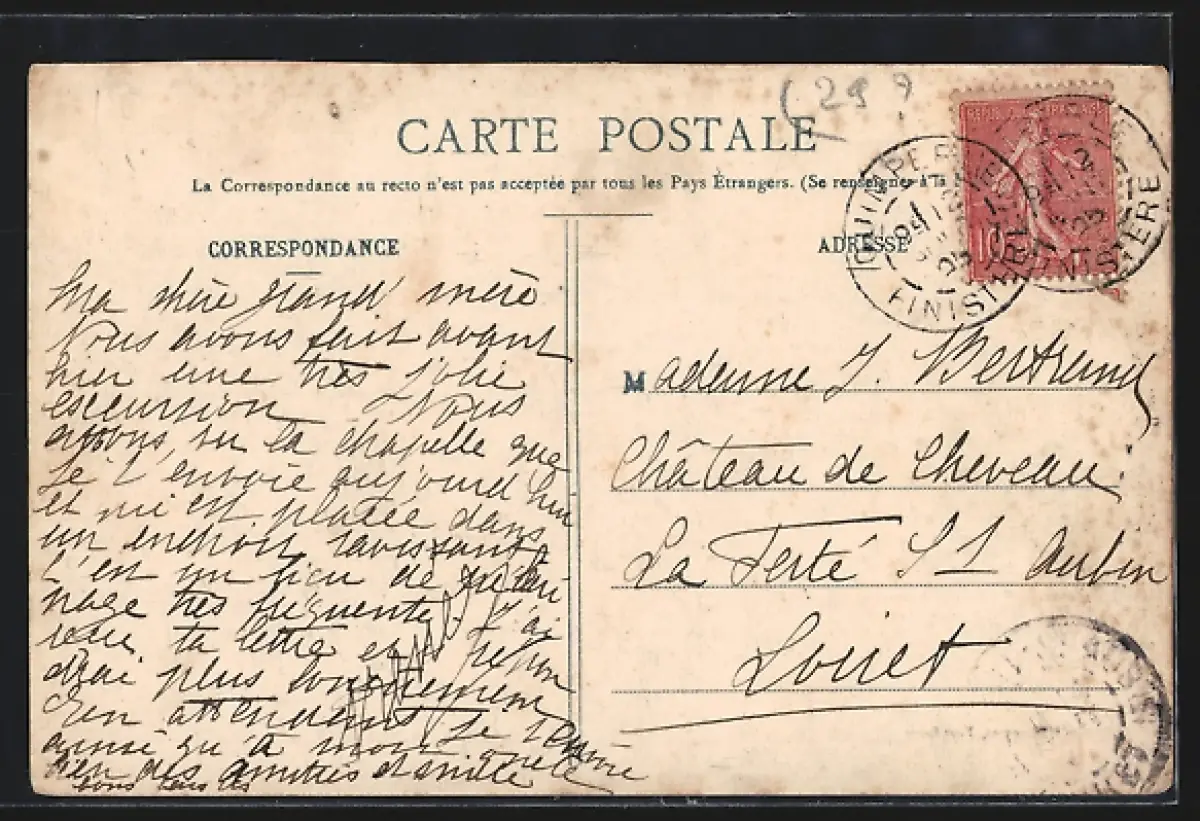 (29)
CARTE POSTALE
La Correspondance au recto n'est pas acceptée par tous les Pays Étrangers. (Se renseigner à la
CORRESPONDANCE
ADRESSE
Ma chère grand' mère
Nous avons fait avant
hier une très jolie
escursion. Nous
avons, vu la chapelle que
je t'envoie aujourd'hui
et qui est placée dans
un endroit ravissant
C'est un lieu de pèleri
nage très fréquenté. J'ai
reçu ta lettre et y répon
drai plus longuement
En attendant je
ainsi qu'à mon oncle
des amitiés et mille
bons
Madame J. Bertrand
Château de Cheveau
La Ferté St Aubin
Loiret
REPUBLIQUE FRANÇAISE
10
QUIMPER
FINISTERE
FINISTERE